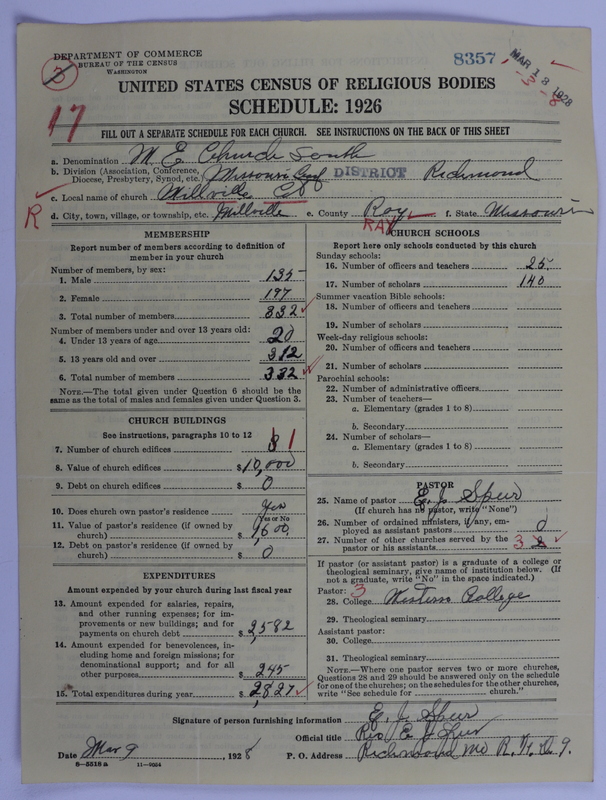 DEPARTMENT OF COMMERCE
BUREAU OF THE CENSUS
WASHINGTON
3
8357
MAR 13 1928
-3-8
UNITED STATES CENSUS OF RELIGIOUS BODIES
SCHEDULE: 1926
17
FILL OUT A SEPARATE SCHEDULE FOR EACH CHURCH. SEE INSTRUCTIONS ON THE BACK OF THIS SHEET
a. Denomination M E Church South
b. Division (Association, Conference, Diocese, Presbytery, Synod, etc.) Missouri Conf DISTRICT Richmond
c. Local name of church Millville Ch
R
d. City, town, village, or township, etc. Millville e. County Ray f. State Missouri
RAY
MEMBERSHIP
Report number of members according to definition of member in your church
Number of members, by sex:
1. Male 135
2. Female 197
3. Total number of members 332
Number of members under and over 13 years old:
4. Under 13 years of age 20
5. 13 years old and over 312
6. Total number of members 332
NOTE.—The total given under Question 6 should be the same as the total of males and females given under Question 3.
CHURCH BUILDINGS
See instructions, paragraphs 10 to 12
7. Number of church edifices 1
8. Value of church edifices $10,000
9. Debt on church edifices $ 0
10. Does church own pastor's residence Yes
Yes or No
11. Value of pastor's residence (if owned by church) $ 1600
12. Debt on pastor's residence (if owned by church) $ 0
EXPENDITURES
Amount expended by your church during last fiscal year
13. Amount expended for salaries, repairs, and other running expenses; for improvements or new buildings; and for payments on church debt $ 2,582
14. Amount expended for benevolences, including home and foreign missions; for denominational support; and for all other purposes $ 245
15. Total expenditures during year $ 2,827
CHURCH SCHOOLS
Report here only schools conducted by this church
Sunday schools:
16. Number of officers and teachers 25
17. Number of scholars 140
Summer vacation Bible schools:
18. Number of officers and teachers
19. Number of scholars
Week-day religious schools:
20. Number of officers and teachers
21. Number of scholars
Parochial schools:
22. Number of administrative officers
23. Number of teachers—
a. Elementary (grades 1 to 8)
b. Secondary
24. Number of scholars—
a. Elementary (grades 1 to 8)
b. Secondary
PASTOR
25. Name of pastor E. J. Speer
(If church has no pastor, write "None")
26. Number of ordained ministers, if any, employed as assistant pastors 0
27. Number of other churches served by the pastor or his assistants 3
If pastor (or assistant pastor) is a graduate of a college or theological seminary, give name of institution below. (If not a graduate, write "No" in the space indicated.)
Pastor: 3
28. College Western College
29. Theological seminary
Assistant pastor:
30. College
31. Theological seminary
NOTE.—Where one pastor serves two or more churches, Questions 28 and 29 should be answered only on the schedule for one of the churches; on the schedules for the other churches, write "See schedule for church."
Signature of person furnishing information E. J. Speer
Official title Rev. E J
Date Mar 9, 1928 P. O. Address Richmond Mo R.
6-5518 a 11-9064